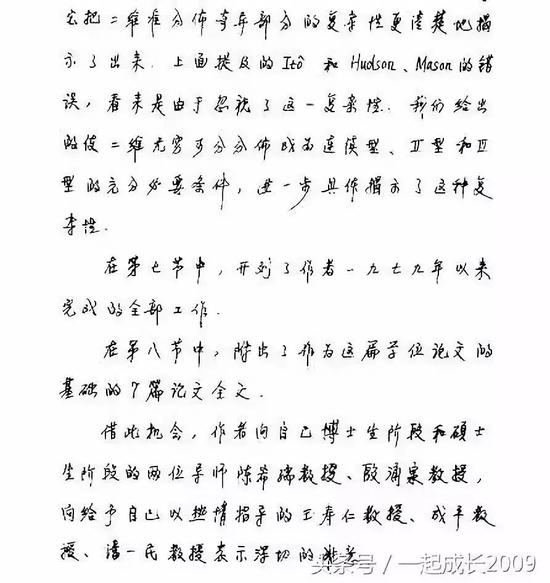 它把二维准分佈奇异部分的复杂性更清楚地揭
示了出来. 上面提及的Itô 和 Hudson、Mason的错
误, 看来是由于忽视了这一复杂性. 我们给出
的使二维无穷可分分佈成为连续型、Ⅱ型和Ⅲ
型的充分必要条件, 进一步具体揭示了这种复
杂性.
在第七节中, 开列了作者一九七九年以来
完成的全部工作.
在第八节中, 附出了作为这篇学位论文的
基础的7篇论文全文.
借此机会, 作者向自己博士生阶段和硕士
生阶段的两位导师陈希孺教授、殷涌泉教授,
向给予自己以热情指导的王寿仁教授、成平教
授、潘一民教授表示深切的
头条号 / 一起成长2009